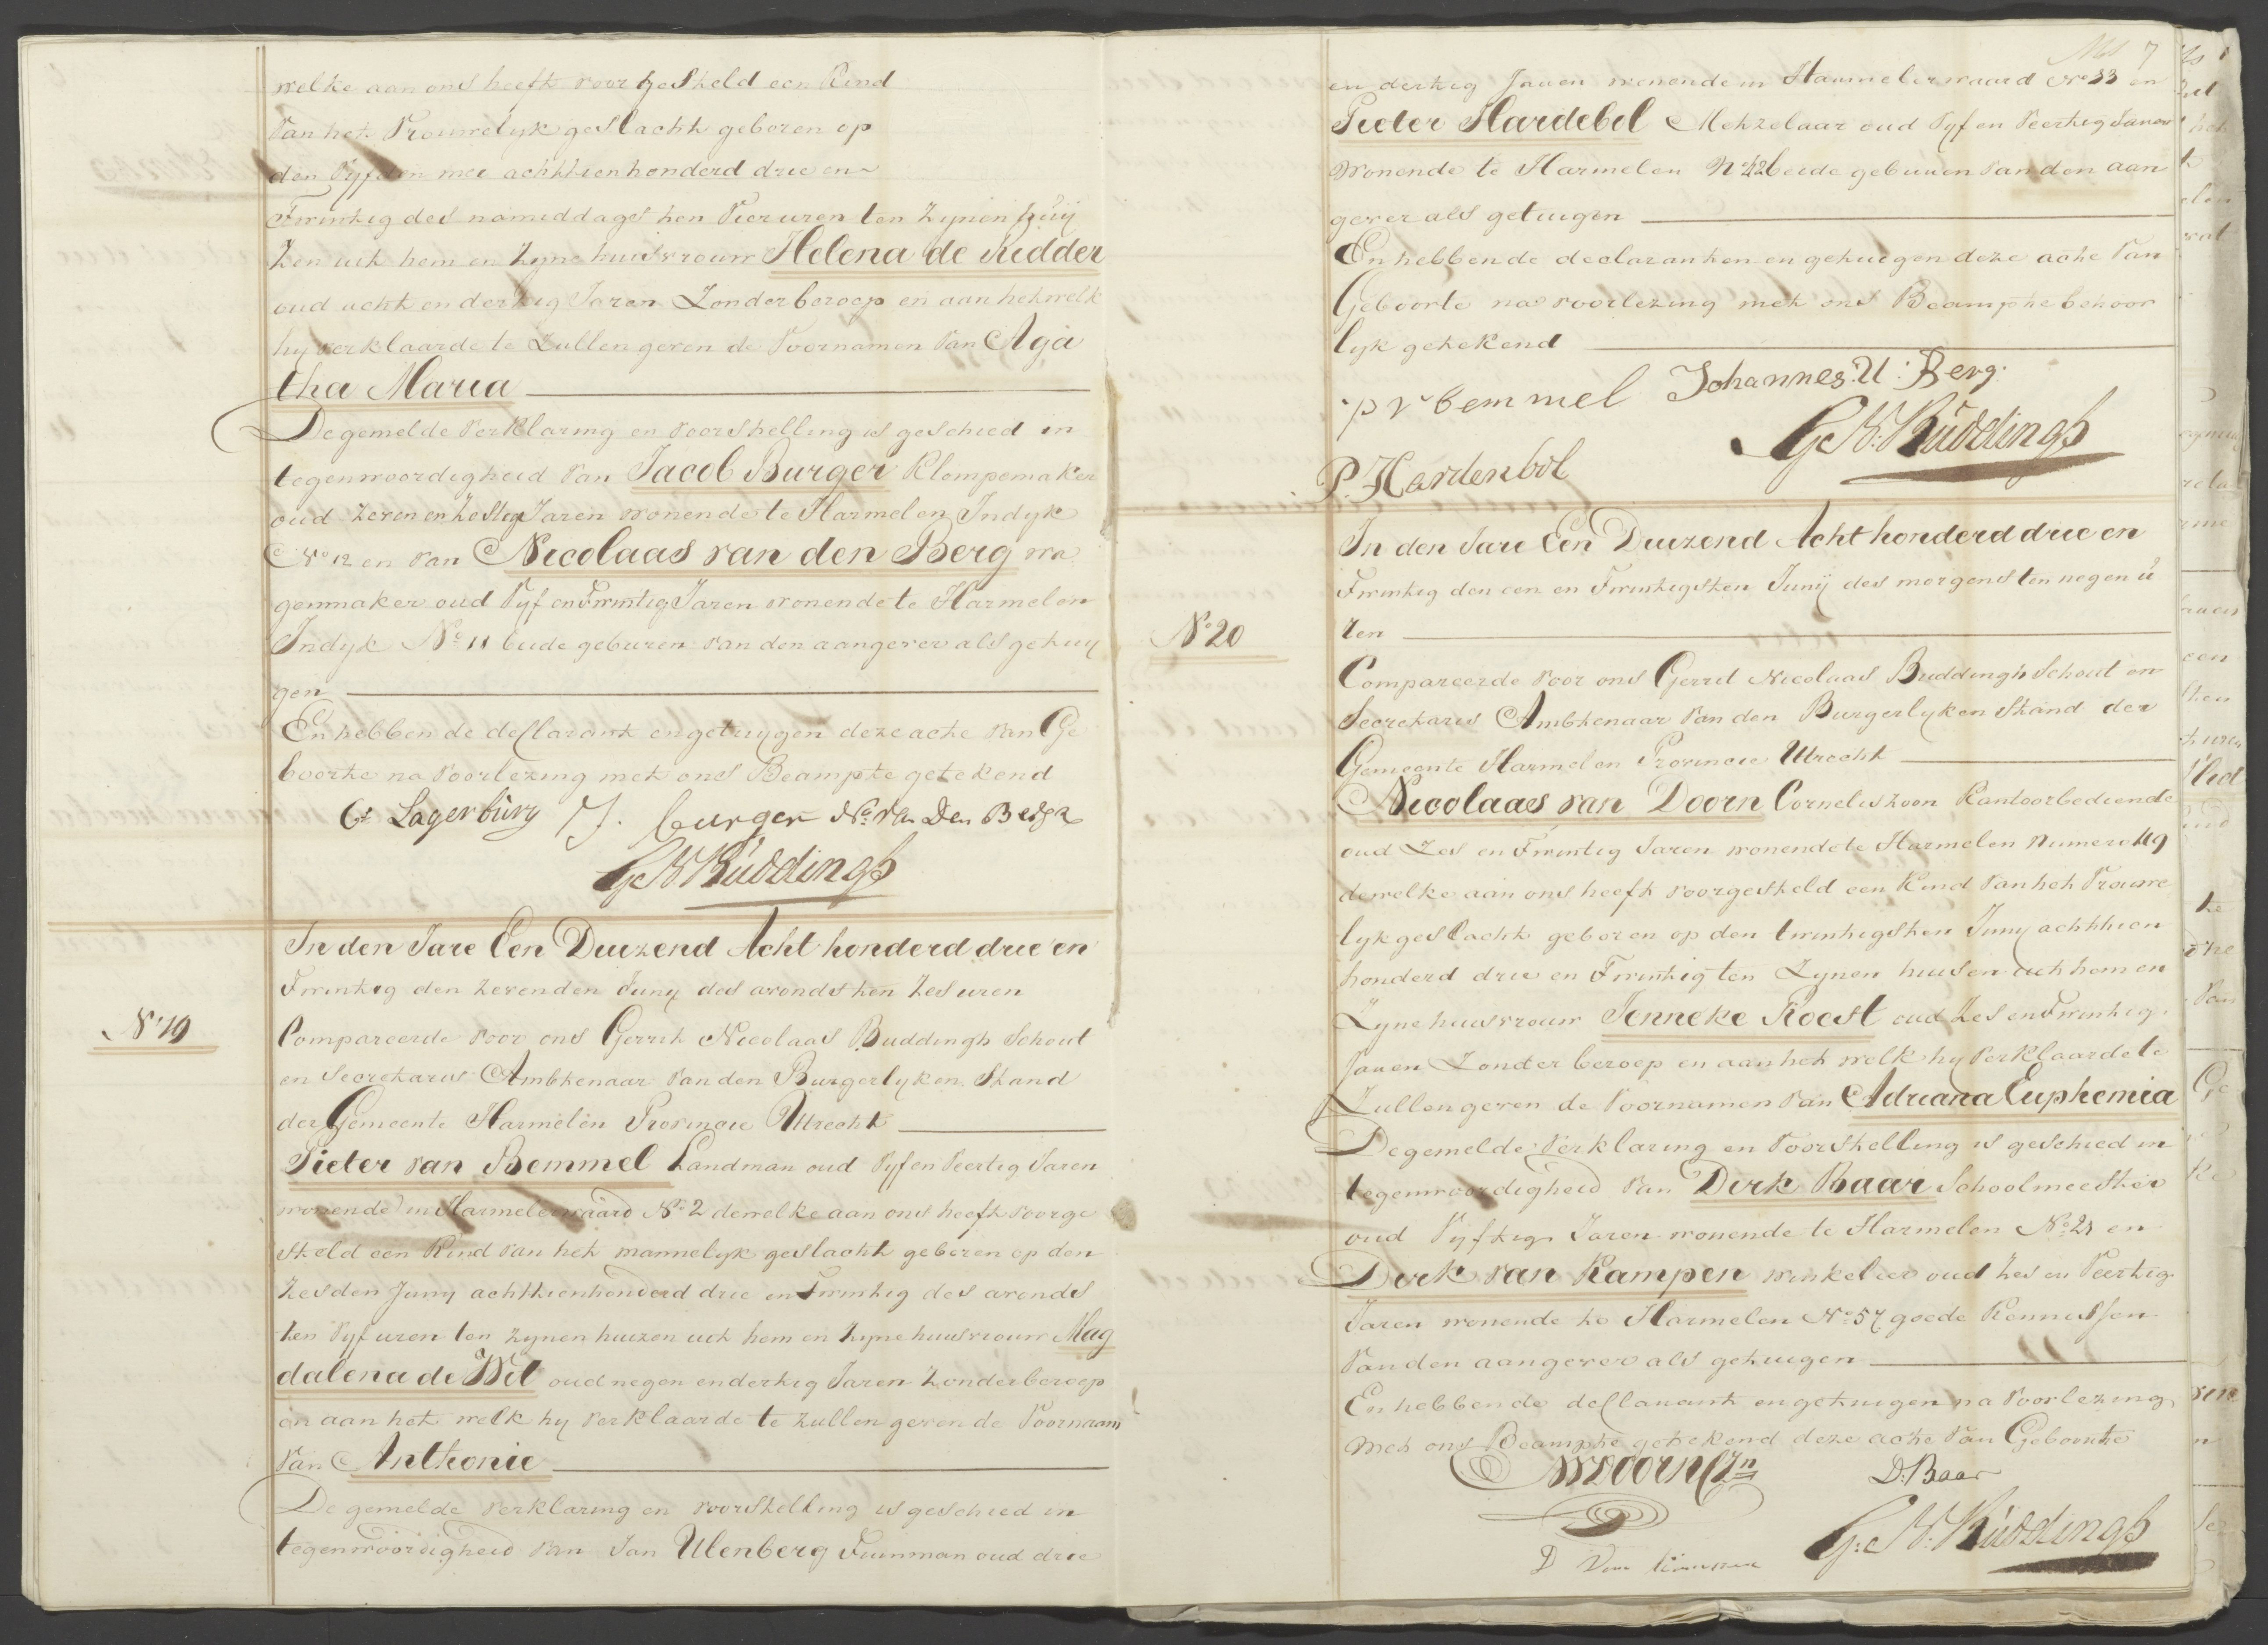 welke aan ons heeft voorgesteld een Kind
van het Vrouwelyk geslacht geboren op
den Vyfden mei achttienhonderd drie en
Twintig des namiddags ten Vier uren ten Zynen huij
zen uit hem en Zyne huisvrouw Helena de Ridder
oud acht en dertig Jaren Zonder beroep en aan hetwelk
hy verklaarde te Zullen geven de Voornamen van Aga
tha Maria
De gemelde verklaring en voorstelling is geschied in
tegenwoordigheid van Jacob Burger Klompemaker
oud zeven en zestig Jaren wonende te Harmelen Indyk
No 12 en van Nicolaas van den Berg wa
genmaker oud Vyf en Twintig Jaren wonende te Harmelen
Indyk No 11 beide geburen van den aangever als getuij
gen
En hebben de declarant en getuijgen deze acte van Ge
boorte na voorlezing met ons Beampte getekend
Gt Lagerburg J. burger Ns van Den Berg
G N Buddingh
No 19
In den Jare Een Duizend Acht honderd drie en
Twintig den zevenden Juny des avonds ten zes uren
Compareerde voor ons Gerrit Nicolaas Buddingh Schout
en Secretaris Ambtenaar van den Burgerlyken Stand
der Gemeente Harmelen Provincie Utrecht
Pieter van Bemmel Landman oud Vyf en Veertig Jaren
wonende in Harmelerwaard No 2 dewelke aan ons heeft voorge
steld een Kind van het mannelyk geslacht geboren op den
Zesden Juny achttienhonderd drie en Twintig des avonds
ten Vyf uren ten zynen huizen uit hem en zyne huisvrouw Mag
dalena de Wit oud negen en dertig Jaren Zonder beroep
en aan het welk hy verklaarde te zullen geven de Voornaam
van Anthonie
De gemelde verklaring en voorstelling is geschied in
tegenwoordigheid van Jan Ulenberg Tuinman oud drie
7
en dertig Jaren wonende in Harmelerwaard No 33 en
Pieter Hardebol Metzelaar oud Vyf en Veertig Jaren
wonende te Harmelen No 42 beide gebuuren van den aan
gever als getuigen
En hebben de declaranten en getuigen deze acte van
Geboorte na voorlezing met ons Beampte behoor
lyk getekend
p v bemmel Johannes. U: Berg.
G. N: Buddingh
P. Hardenbol
No 20
In den Jare Een Duizend Acht honderd drie en
Twintig den een en Twintigsten Junij des morgens ten negen ú
ren
Compareerde voor ons Gerrit Nicolaas Buddingh Schout en
Secretaris Ambtenaar van den Burgerlyken Stand der
Gemeente Harmelen Provincie Utrecht
Nicolaas van Doorn Corneliszoon Kantoorbediende
oud Zes en Twintig Jaren wonende te Harmelen Numero 49
dewelke aan ons heeft voorgesteld een Kind van het Vrouwe
lyk geslacht geboren op den twintigsten Juny achttien
honderd drie en Twintig ten Zynen huisen uit hem en
Zyne huisvrouw Jenneke Roest oud Zes en Twintig
Jaren Zonder beroep en aan het welk hy verklaarde te
Zullen geven de Voornamen van Adriana Euphemia
De gemelde verklaring en Voorstelling is geschied in
tegenwoordigheid van Dirk Baar Schoolmeester
oud Vyftig Jaren wonende te Harmelen No 21 en
Dirk van Kampen winkelier oud Zes en Veertig
Jaren wonende te Harmelen No 57 goede Kennissen
van den aangever als getuigen
En hebben de declarant en getuigen na voorlezing
met ons Beampte getekend deze acte van Geboorte
NvDoorn CZn D. Baar
G: N: Buddingh
D Van